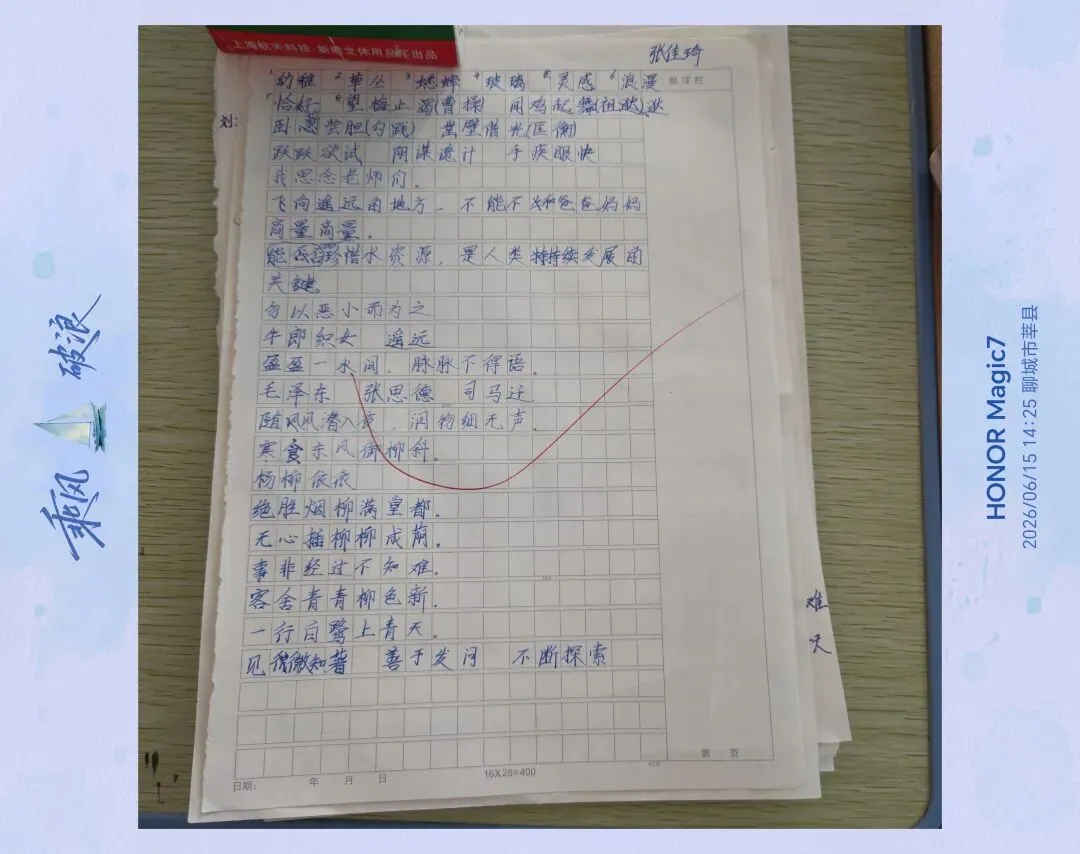 上海航天科技·新南文体用品厂出品
张佳琦
1幼稚 2草丛 3蟋蟀 4玻璃 5灵感 6浪漫
批注栏
7恰好 8望梅止渴(曹操) 闻鸡起舞(祖逖)
划:
卧薪尝胆(勾践) 凿壁借光(匡衡)
跃跃欲试 阴谋诡计 手疾眼快
我思念老师们。
飞向遥远的地方,不能不和爸爸妈妈
商量商量。
能否珍惜水资源,是人类持续发展的
关键。
勿以恶小而为之
牛郎织女 遥远
盈盈一水间,脉脉不得语。
毛泽东 张思德 司马迁
随风潜入夜,润物细无声。
寒食东风御柳斜。
杨柳依依
绝胜烟柳满皇都。
无心插柳柳成荫。
事非经过不知难。
客舍青青柳色新。
一行白鹭上青天。
见微知著 善于发问 不断探索
第 页
16X25=400
日期: 年 月 日
难
天
乘风破浪
HONOR Magic7
2026/06/15 14:25 聊城市莘县